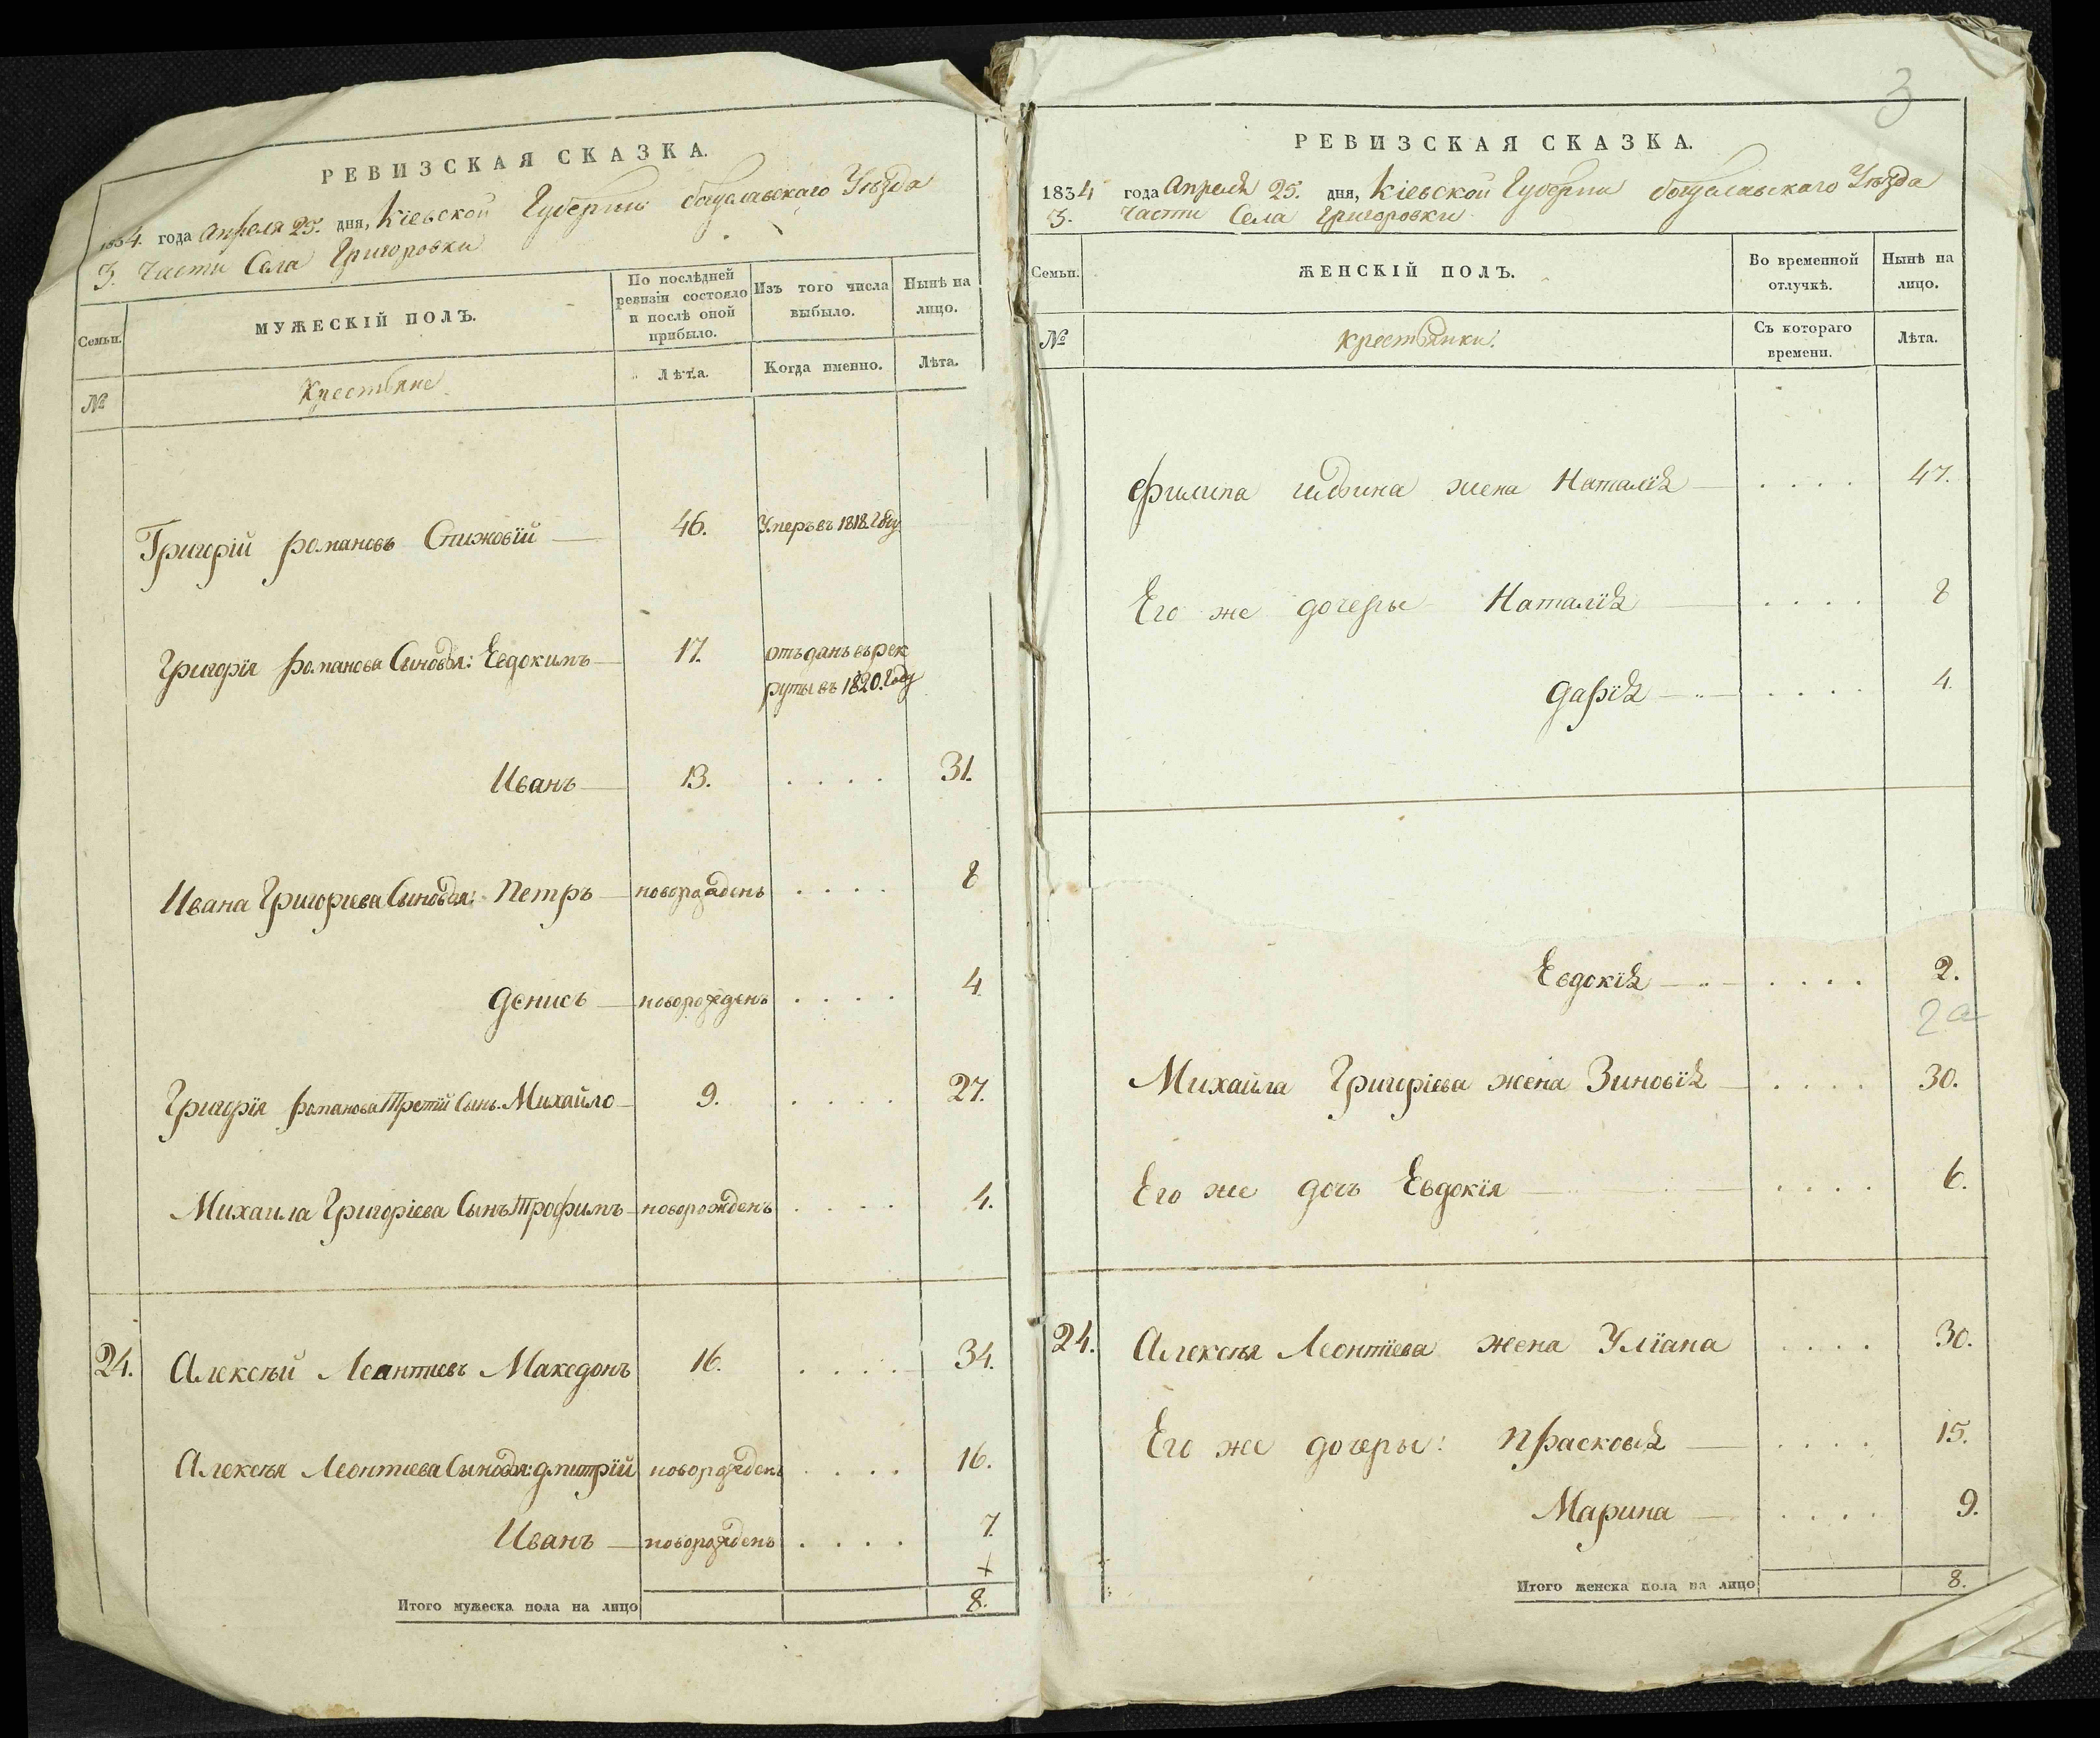 РЕВИЗСКАЯ СКАЗКА.
1834. года Апреля 25. дня, Кіевской Губерніи богуславскаго Уѣзда
3. Части Села Григоровки
Семьи.
МУЖЕСКІЙ ПОЛЪ.
По послѣдней ревизіи состояло и послѣ оной прибыло.
Изъ того числа выбыло.
Нынѣ на лицо.
№
Крестьяне
Лѣта.
Когда именно.
Лѣта.
Григорій романовъ 46. Умеръ въ 1818. Году
Григорія романова Сыновья: Евдокимъ 17. отъданъ въ рек
руты въ 1820. Году
Иванъ 13. . . . . 31.
Ивана Григорієва Сыновья: Петръ новорожденъ . . . . 8
Денисъ новорожденъ . . . . 4
Григорія романова Третій Сынъ. Михайло 9. . . . . 27.
Михаила Григорієва Сынъ Трофимъ новорожденъ . . . . 4.
24. Алексѣй Леонтиевъ Македонъ 16. . . . . 34.
Алексѣя Леонтиева Сыновья: Дмитрій новорожденъ . . . . 16.
Иванъ новорожденъ . . . . 7.
+
Итого мужеска пола на лицо 8.
3
РЕВИЗСКАЯ СКАЗКА.
1834 года Апреля 25. дня, Кіевской Губерніи богуславскаго Уѣзда
3. Части Села Григоровки
Семьи.
ЖЕНСКІЙ ПОЛЪ.
Во временной отлучкѣ.
Нынѣ на лицо.
№
Крестьянки.
Съ котораго времени.
Лѣта.
Филипа жена Наталія . . . . 47.
Его же дочеры Наталія . . . . 8
Дарія . . . . 4.
Евдокія . . . . 2.
2а
Михайла Григорієва жена Зиновія . . . . 30.
Его же дочь Евдокія . . . . 6.
24. Алексѣя Леонтіева жена Уліана . . . . 30.
Его же дочеры: Прасковія . . . . 15.
Марина . . . . 9.
Итого женска пола на лицо 8.